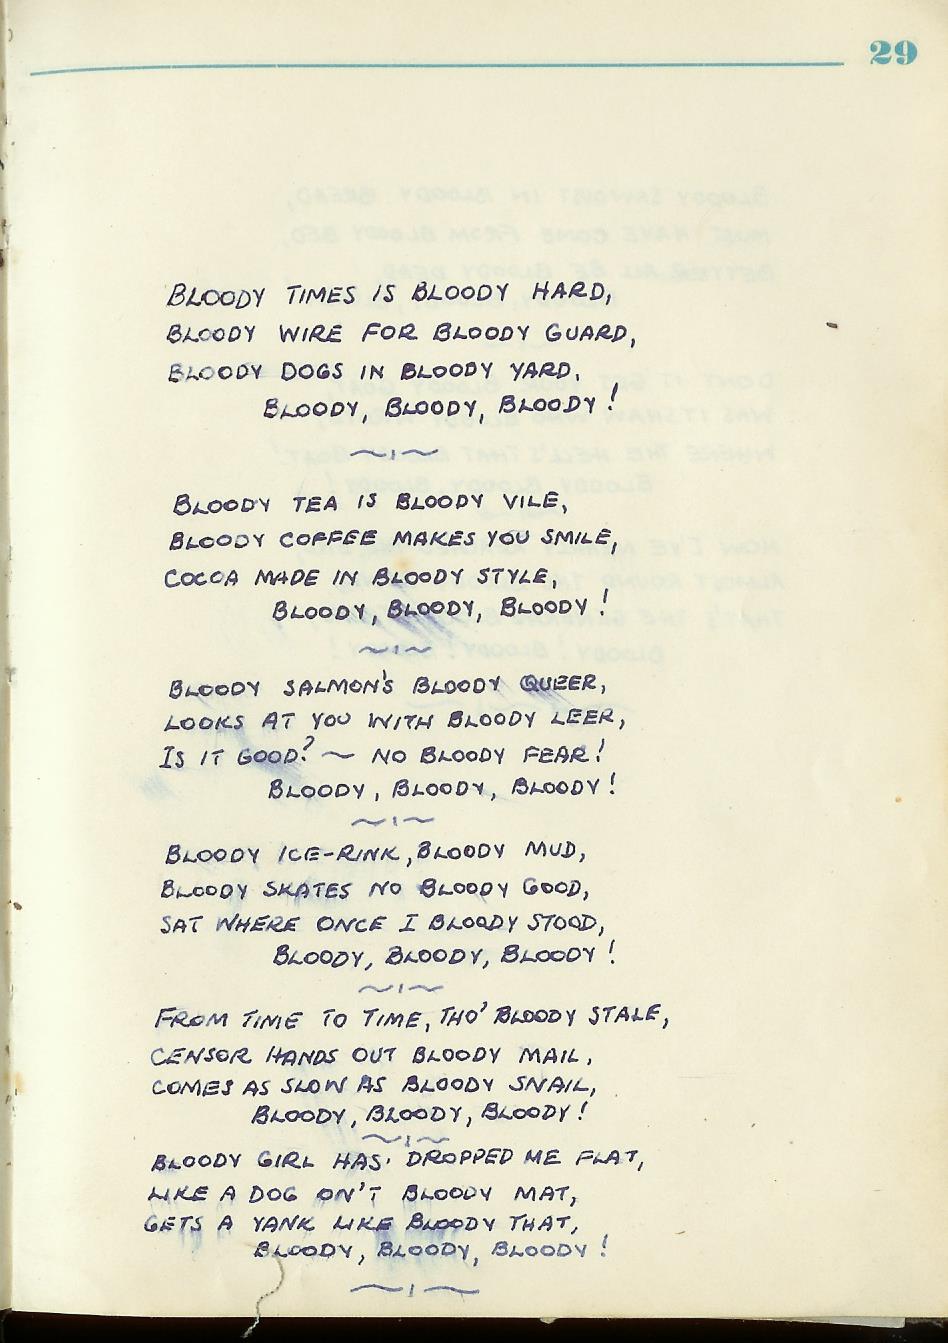 29
BLOODY TIMES IS BLOODY HARD,
BLOODY WIRE FOR BLOODY GUARD,
BLOODY DOGS IN BLOODY YARD,
BLOODY, BLOODY, BLOODY!
BLOODY TEA IS BLOODY VILE,
BLOODY COFFEE MAKES YOU SMILE,
COCOA MADE IN BLOODY STYLE,
BLOODY, BLOODY, BLOODY!
BLOODY SALMON'S BLOODY QUEER,
LOOKS AT YOU WITH BLOODY LEER,
IS IT GOOD? ~ NO BLOODY FEAR!
BLOODY, BLOODY, BLOODY!
BLOODY ICE-RINK, BLOODY MUD,
BLOODY SKATES NO BLOODY GOOD,
SAT WHERE ONCE I BLOODY STOOD,
BLOODY, BLOODY, BLOODY!
FROM TIME TO TIME, THO' BLOODY STALE,
CENSOR HANDS OUT BLOODY MAIL,
COMES AS SLOW AS BLOODY SNAIL,
BLOODY, BLOODY, BLOODY!
BLOODY GIRL HAS DROPPED ME FLAT,
LIKE A DOG ON'T BLOODY MAT,
GETS A YANK LIKE BLOODY THAT,
BLOODY, BLOODY, BLOODY!